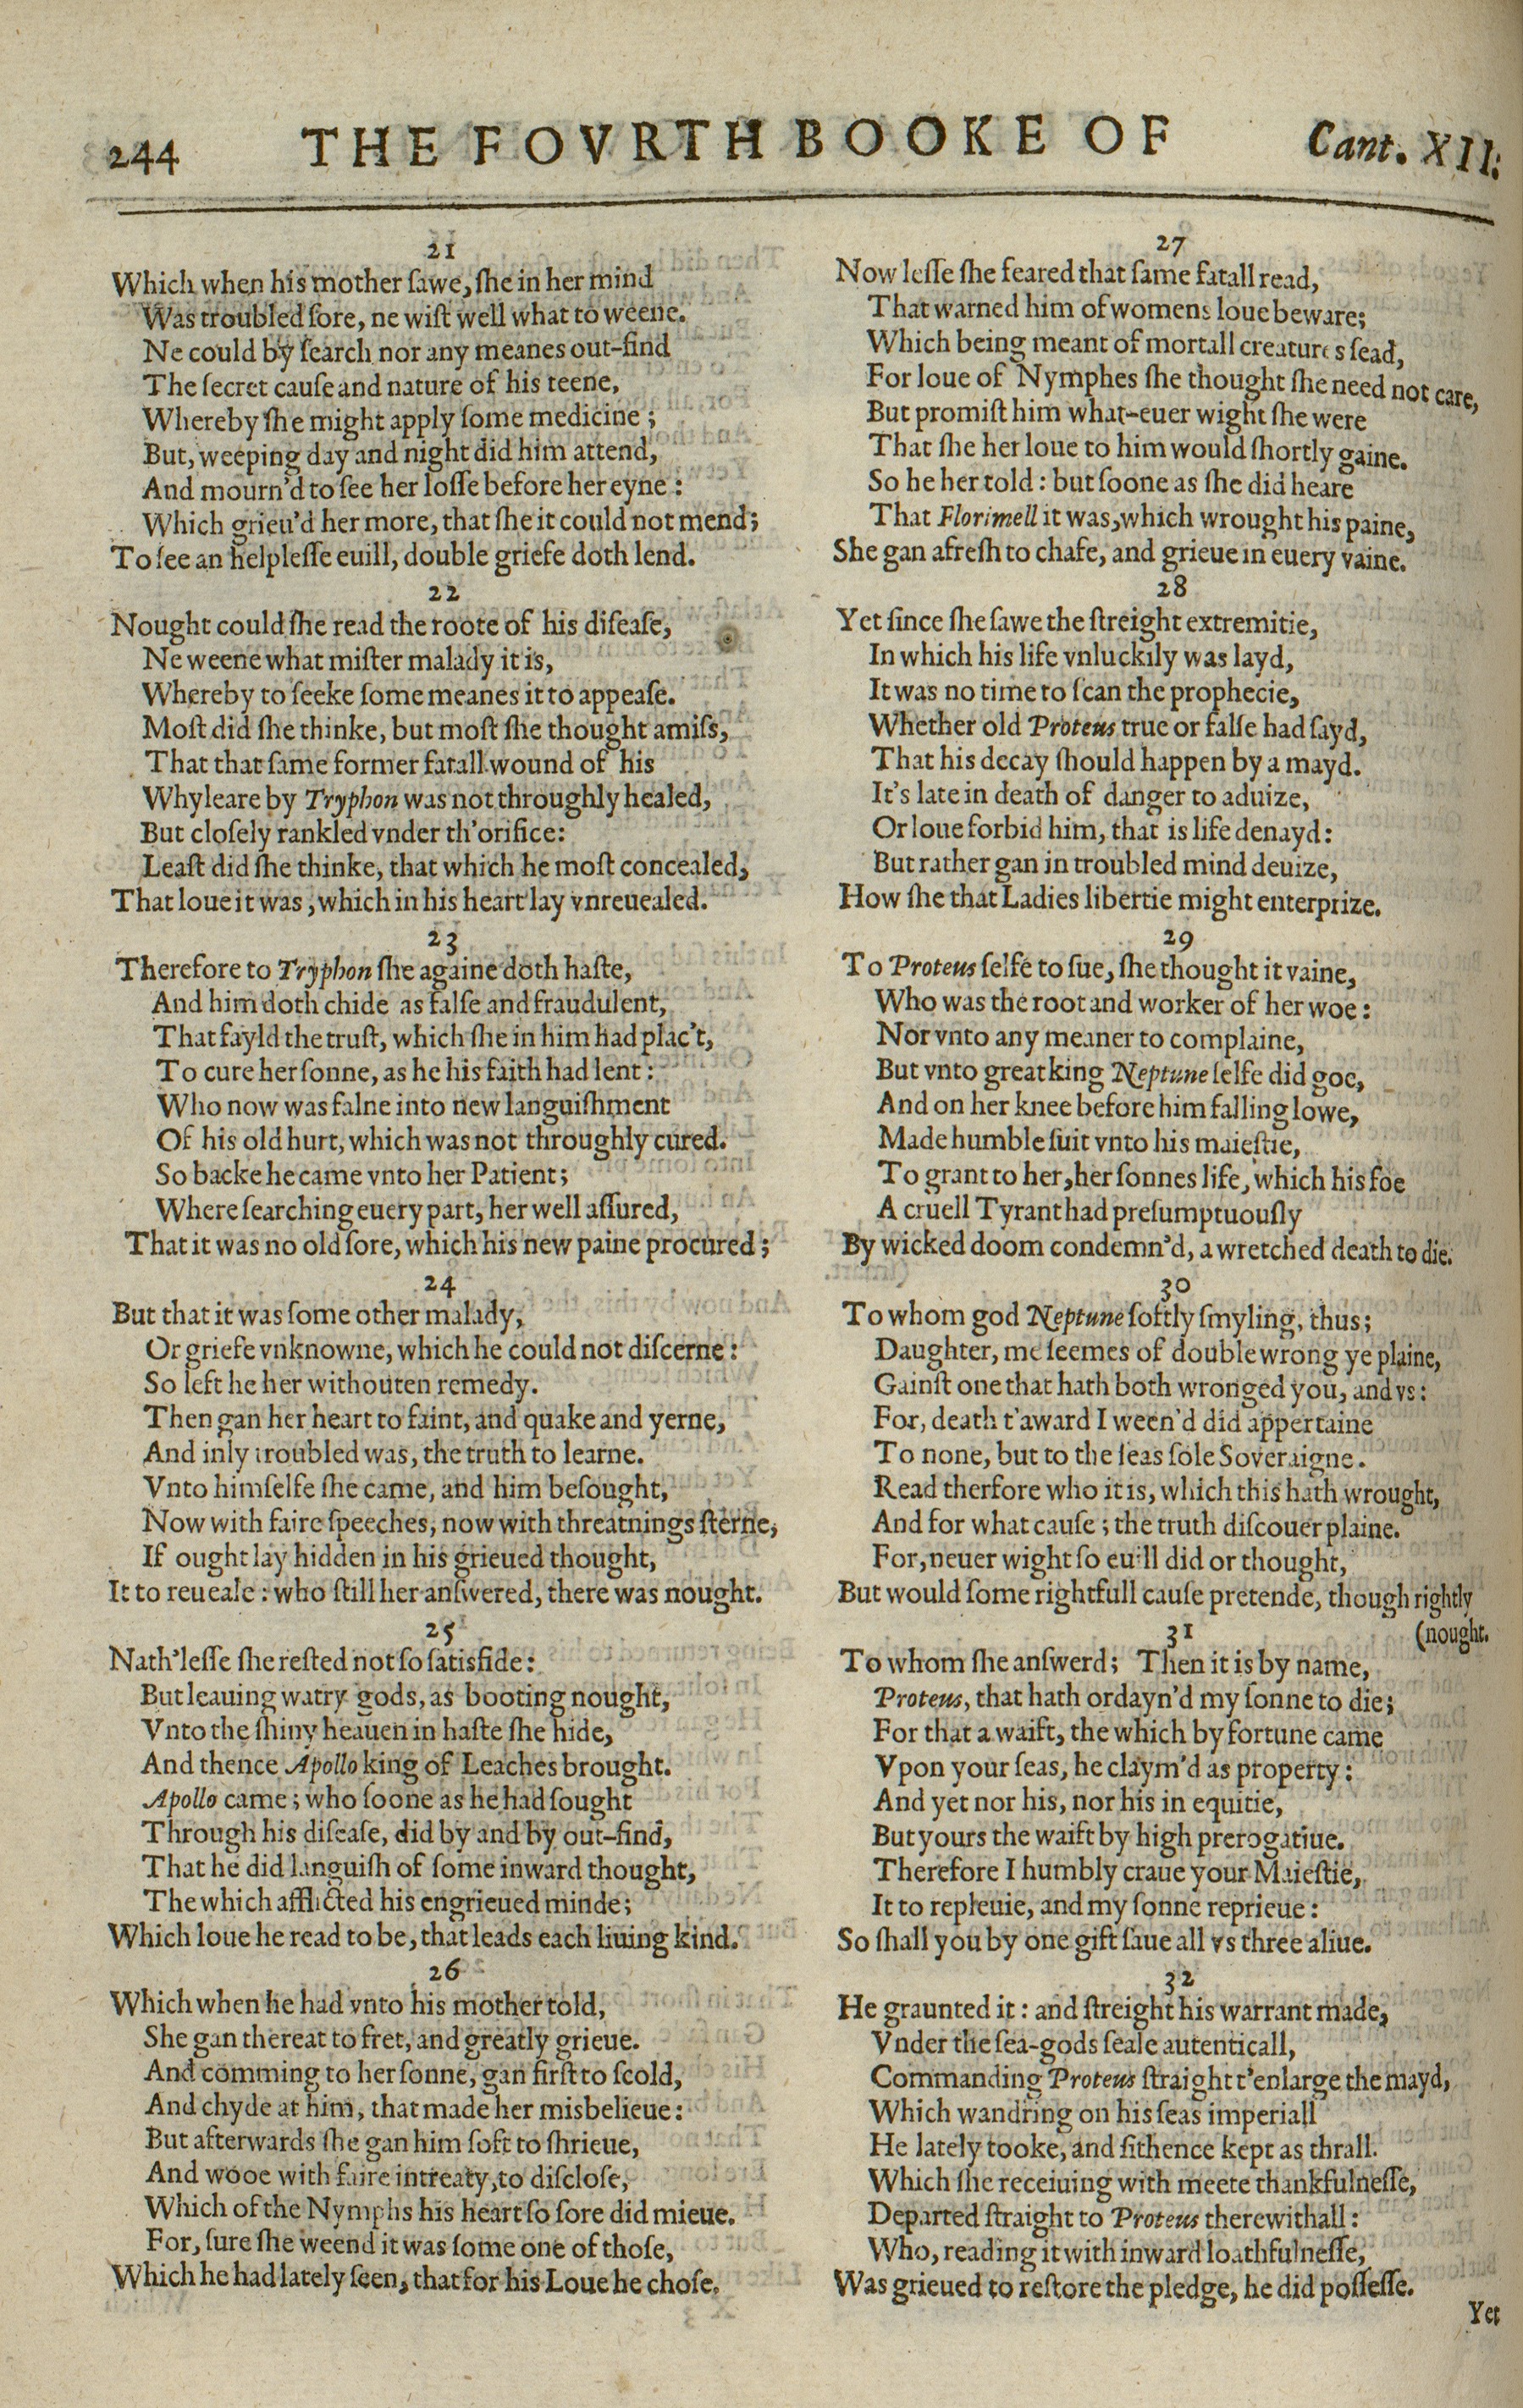 244 THE FOVRTH BOOKE OF Cant. XII.
21
Which when his mother ſawe, ſhe in her mind
Was troubled ſore, ne wiſt well what to weene.
Ne could by ſearch nor any meanes out-find
The ſecret cauſe and nature of his teene,
Whereby ſhe might apply ſome medicine;
But, weeping day and night did him attend,
And mourn'd to ſee her loſſe before her eyne:
Which grieu'd her more, that ſhe it could not mend;
To ſee an helpleſſe euill, double griefe doth lend.
22
Nought could ſhe read the roote of his diſeaſe,
Ne weene what miſter malady it is,
Whereby to ſeeke ſome meanes it to appeaſe.
Moſt did ſhe thinke, but moſt ſhe thought amiſs,
That that ſame former fatall wound of his
Whyleare by Tryphon was not throughly healed,
But cloſely rankled vnder th'orifice:
Leaſt did ſhe thinke, that which he moſt concealed,
That loue it was, which in his heart lay vnreuealed.
23
Therefore to Tryphon ſhe againe doth haſte,
And him doth chide as falſe and fraudulent,
That fayld the truſt, which ſhe in him had plac't,
To cure her ſonne, as he his faith had lent:
Who now was falne into new languiſhment
Of his old hurt, which was not throughly cured.
So backe he came vnto her Patient;
Where ſearching euery part, her well aſſured,
That it was no old ſore, which his new paine procured;
24
But that it was ſome other malady,
Or griefe vnknowne, which he could not diſcerne:
So left he her withouten remedy.
Then gan her heart to faint, and quake and yerne,
And inly troubled was, the truth to learne.
Vnto himſelfe ſhe came, and him beſought,
Now with faire ſpeeches, now with threatnings ſterne,
If ought lay hidden in his grieued thought,
It to reueale: who ſtill her anſwered, there was nought.
25
Nath'leſſe ſhe reſted not ſo ſatisfide:
But leauing watry gods, as booting nought,
Vnto the ſhiny heauen in haſte ſhe hide,
And thence Apollo king of Leaches brought.
Apollo came; who ſoone as he had ſought
Through his diſeaſe, did by and by out-find,
That he did languiſh of ſome inward thought,
The which afflicted his engrieued minde;
Which loue he read to be, that leads each liuing kind.
26
Which when he had vnto his mother told,
She gan thereat to fret, and greatly grieue.
And comming to her ſonne, gan firſt to ſcold,
And chyde at him, that made her misbelieue:
But afterwards ſhe gan him ſoft to ſhrieue,
And wooe with faire intreaty, to diſcloſe,
Which of the Nymphs his heart ſo ſore did mieue.
For, ſure ſhe weend it was ſome one of thoſe,
Which he had lately ſeen, that for his Loue he choſe.
27
Now leſſe ſhe feared that ſame fatall read,
That warned him of womens loue beware;
Which being meant of mortall creatures ſead,
For loue of Nymphes ſhe thought ſhe need not care,
But promiſt him what-euer wight ſhe were
That ſhe her loue to him would ſhortly gaine.
So he her told: but ſoone as ſhe did heare
That Florimell it was, which wrought his paine,
She gan afreſh to chafe, and grieue in euery vaine.
28
Yet ſince ſhe ſawe the ſtreight extremitie,
In which his life vnluckily was layd,
It was no time to ſcan the prophecie,
Whether old Proteus true or falſe had ſayd,
That his decay ſhould happen by a mayd.
It's late in death of danger to aduize,
Or loue forbid him, that is life denayd:
But rather gan in troubled mind deuize,
How ſhe that Ladies libertie might enterprize.
29
To Proteus ſelfe to ſue, ſhe thought it vaine,
Who was the root and worker of her woe:
Nor vnto any meaner to complaine,
But vnto great king Neptune ſelfe did goe,
And on her knee before him falling lowe,
Made humble ſuit vnto his maieſtie,
To grant to her, her ſonnes life, which his foe
A cruell Tyrant had preſumptuouſly
By wicked doom condemn'd, a wretched death to die.
30
To whom god Neptune ſoftly ſmyling, thus;
Daughter, me ſeemes of double wrong ye plaine,
Gainſt one that hath both wronged you, and vs:
For, death t'award I ween'd did appertaine
To none, but to the ſeas ſole Soveraigne.
Read therfore who it is, which this hath wrought,
And for what cauſe; the truth diſcouer plaine.
For, neuer wight ſo euill did or thought,
But would ſome rightfull cauſe pretende, though rightly
(nought.
31
To whom ſhe anſwerd; Then it is by name,
Proteus, that hath ordayn'd my ſonne to die;
For that a waift, the which by fortune came
Vpon your ſeas, he claym'd as property:
And yet nor his, nor his in equitie,
But yours the waift by high prerogatiue.
Therefore I humbly craue your Maieſtie,
It to repleuie, and my ſonne reprieue:
So ſhall you by one gift ſaue all vs three aliue.
32
He graunted it: and ſtreight his warrant made,
Vnder the ſea-gods ſeale autenticall,
Commanding Proteus ſtraight t'enlarge the mayd,
Which wandring on his ſeas imperiall
He lately tooke, and ſithence kept as thrall.
Which ſhe receiuing with meete thankfulneſſe,
Departed ſtraight to Proteus therewithall:
Who, reading it with inward loathfulneſſe,
Was grieued to reſtore the pledge, he did poſſeſſe.
Yet